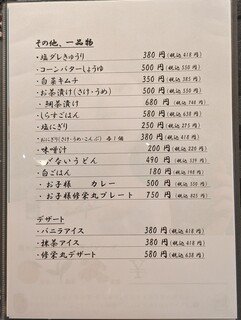 その他、一品物
・塩ダレきゅうり 380 円(税込 418 円)
・コーンバターしょうゆ 500 円(税込 550 円)
・白菜キムチ 350 円(税込 385 円)
・お茶漬け(さけ・うめ) 500 円(税込 550 円)
・鯛茶漬け 680 円(税込 748 円)
・しらすごはん 580 円(税込 638 円)
・塩にぎり 250 円(税込 275 円)
・おにぎり(さけ・うめ・こんぶ) 各1個 380 円(税込 418 円)
・味噌汁 200 円(税込 220 円)
ないうどん 490 円(税込 539 円)
・白ごはん 180 円(税込 198 円)
・お子様 カレー 500 円(税込 550 円)
・お子様修栄丸プレート 750 円(税込 825 円)
デザート
・バニラアイス 380 円(税込 418 円)
・抹茶アイス 380 円(税込 418 円)
・修栄丸デザート 580 円(税込 638 円)